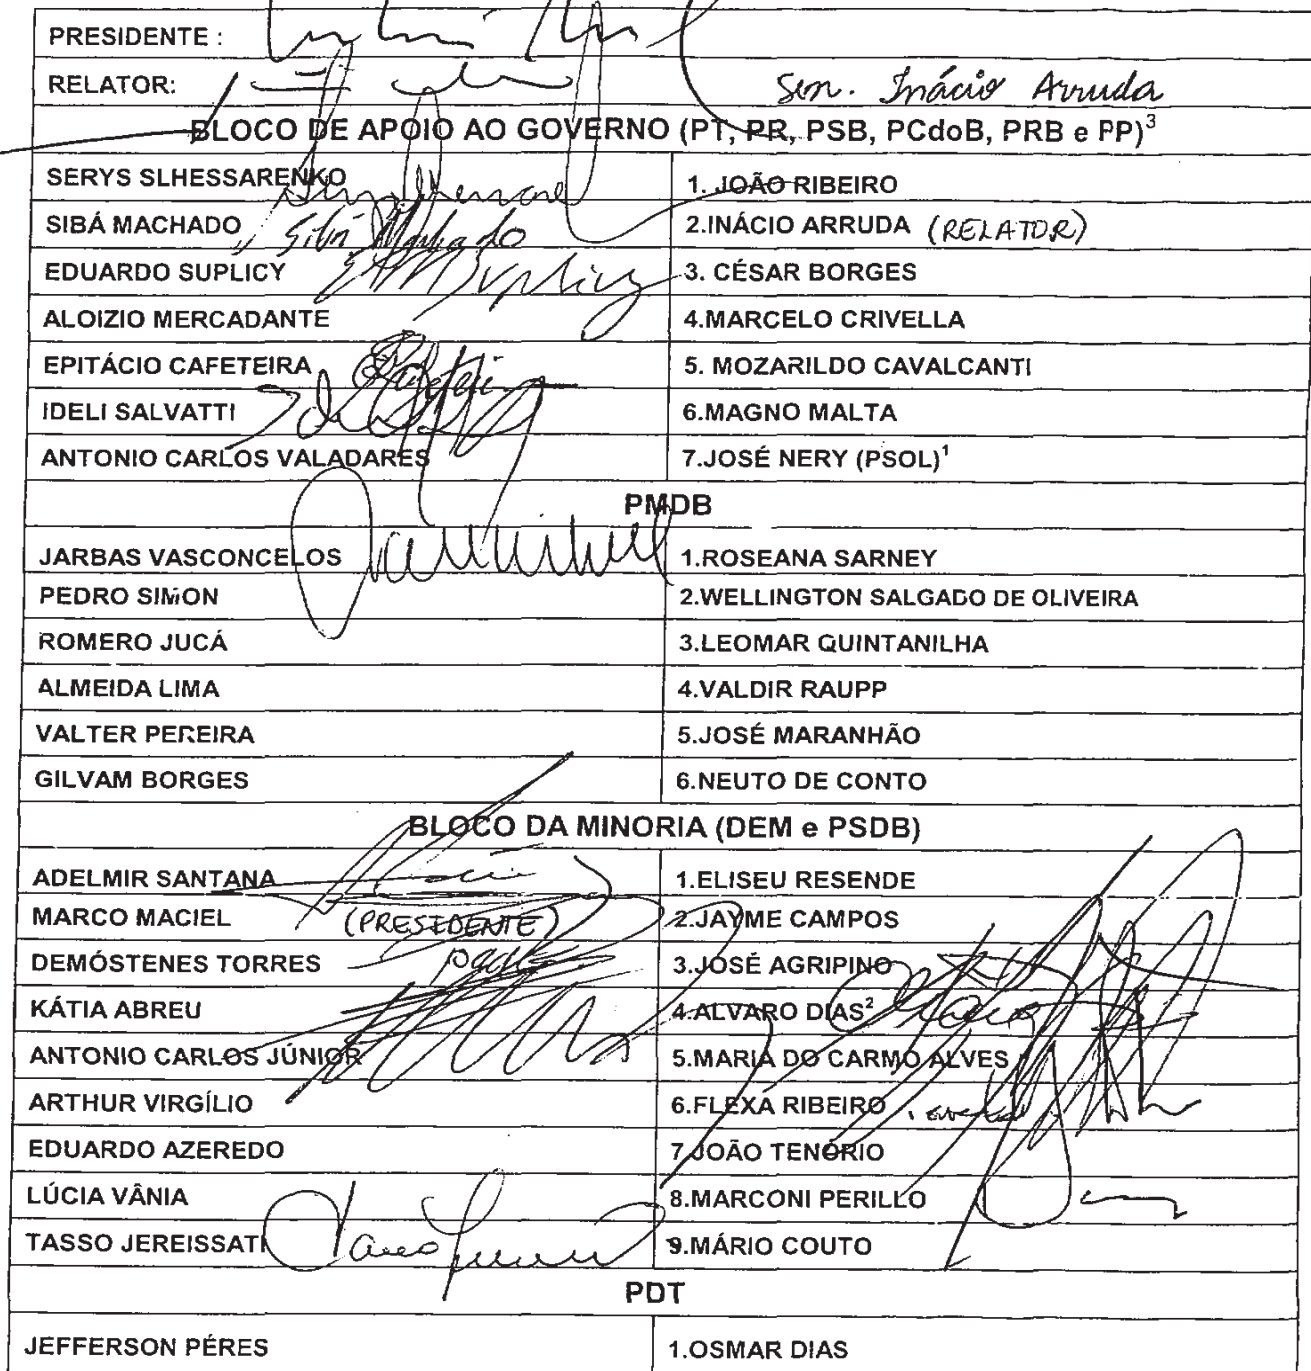 PRESIDENTE :
RELATOR: Sen. Inácio Arruda
BLOCO DE APOIO AO GOVERNO (PT, PR, PSB, PCdoB, PRB e PP)³
SERYS SLHESSARENKO 1. JOÃO RIBEIRO
SIBÁ MACHADO Sibá Machado 2.INÁCIO ARRUDA (RELATOR)
EDUARDO SUPLICY Suplicy 3. CÉSAR BORGES
ALOIZIO MERCADANTE 4.MARCELO CRIVELLA
EPITÁCIO CAFETEIRA 5. MOZARILDO CAVALCANTI
IDELI SALVATTI 6.MAGNO MALTA
ANTONIO CARLOS VALADARES 7.JOSÉ NERY (PSOL)¹
PMDB
JARBAS VASCONCELOS 1.ROSEANA SARNEY
PEDRO SIMON 2.WELLINGTON SALGADO DE OLIVEIRA
ROMERO JUCÁ 3.LEOMAR QUINTANILHA
ALMEIDA LIMA 4.VALDIR RAUPP
VALTER PEREIRA 5.JOSÉ MARANHÃO
GILVAM BORGES 6.NEUTO DE CONTO
BLOCO DA MINORIA (DEM e PSDB)
ADELMIR SANTANA 1.ELISEU RESENDE
MARCO MACIEL (PRESIDENTE) 2.JAYME CAMPOS
DEMÓSTENES TORRES 3.JOSÉ AGRIPINO
KÁTIA ABREU 4.ALVARO DIAS²
ANTONIO CARLOS JÚNIOR 5.MARIA DO CARMO ALVES
ARTHUR VIRGÍLIO 6.FLEXA RIBEIRO
EDUARDO AZEREDO 7.JOÃO TENÓRIO
LÚCIA VÂNIA 8.MARCONI PERILLO
TASSO JEREISSATI 9.MÁRIO COUTO
PDT
JEFFERSON PÉRES 1.OSMAR DIAS